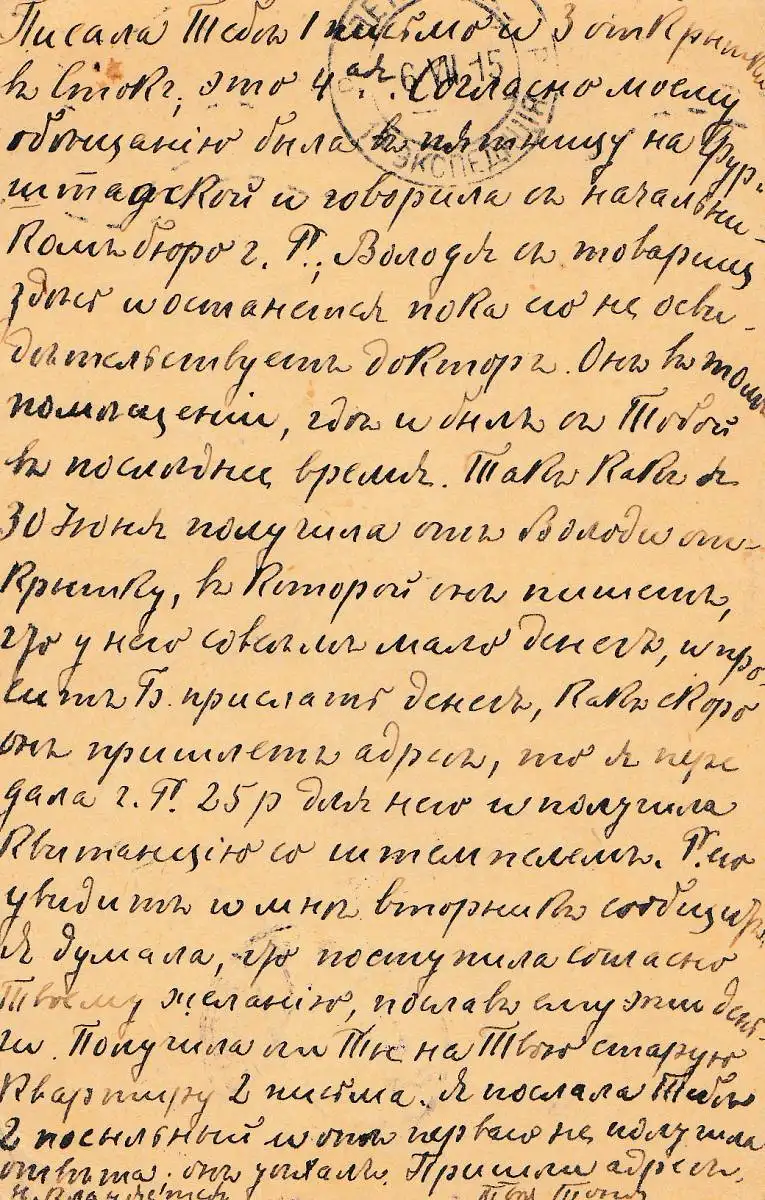 Писала Тебѣ 1 письмо и 3 открытки
въ Стокг, это 4ая. Согласно моему
обѣщанію была въ пятницу на Фур-
штадской и говорила съ начальни-
комъ бюро г. П., Володя съ товарищ
здѣсь и останется пока его не осви-
дѣтельствуетъ докторъ. Онъ въ томъ
помѣщеніи, гдѣ и былъ съ Тобой
въ послѣднее время. Такъ какъ я
30 Июня получила отъ Володи от-
крытку, въ которой онъ пишетъ,
что у него совсѣмъ мало денегъ, и про-
ситъ Б. прислать денегъ, какъ скоро
онъ пришлетъ адресъ, то я пере
дала г. П. 25 р для него и получила
квитанцію со штемпелемъ. П. его
увидитъ и мнѣ вторникъ сообщитъ,
Я думала, что поступила согласно
Твоему желанію, пославъ ему эти день-
ги. Получила ли Ты на Твою старую
квартиру 2 письма. Я послала Тебѣ
2 посыльный и отъ перваго не получила
отвѣта, онъ уѣхалъ. Пришли адресъ.
Твоя Тоня
6 VII 15
ЭКСПЕДИЦІЯ